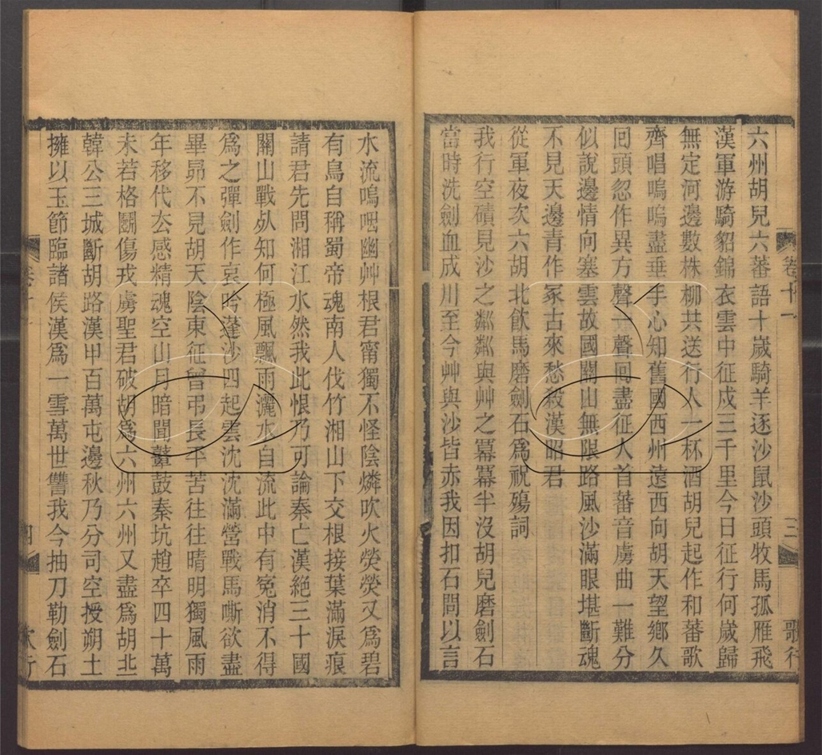 卷十一
三
歌行
六州胡兒六蕃語十歲騎羊逐沙鼠沙頭牧馬孤雁飛
漢軍游騎貂錦衣雲中征戍三千里今日征行何歲歸
無定河邊數株柳共送行人一杯酒胡兒起作和蕃歌
齊唱嗚嗚盡垂手心知舊國西州遠西向胡天望鄉久
囘頭忽作異方聲一聲囘盡征人首蕃音虜曲一難分
似說邊情向塞雲故國關山無限路風沙滿眼堪斷魂
不見天邊青作冢古來愁殺漢昭君
從軍夜次六胡北飲馬磨劍石爲祝殤詞
我行空磧見沙之粼粼與艸之冪冪半沒胡兒磨劍石
當時洗劍血成川至今艸與沙皆赤我因扣石問以言
水流嗚咽幽艸根君甯獨不怪陰燐吹火熒熒又爲碧
有鳥自稱蜀帝魂南人伐竹湘山下交根接葉滿淚痕
請君先問湘江水然我此恨乃可論秦亡漢絕三十國
關山戰夗知何極風飄雨灑水自流此中有冤消不得
爲之彈劍作哀吟蓬沙四起雲沈沈滿營戰馬嘶欲盡
畢昴不見胡天陰東征曾弔長平苦往往晴明獨風雨
年移代去感精魂空山月暗聞鼙鼓秦坑趙卒四十萬
未若格鬭傷戎虜聖君破胡爲六州六州又盡爲胡北
韓公三城斷胡路漢甲百萬屯邊秋乃分司空授朔土
擁以玉節臨諸侯漢爲一雪萬世讐我今抽刀勒劍石